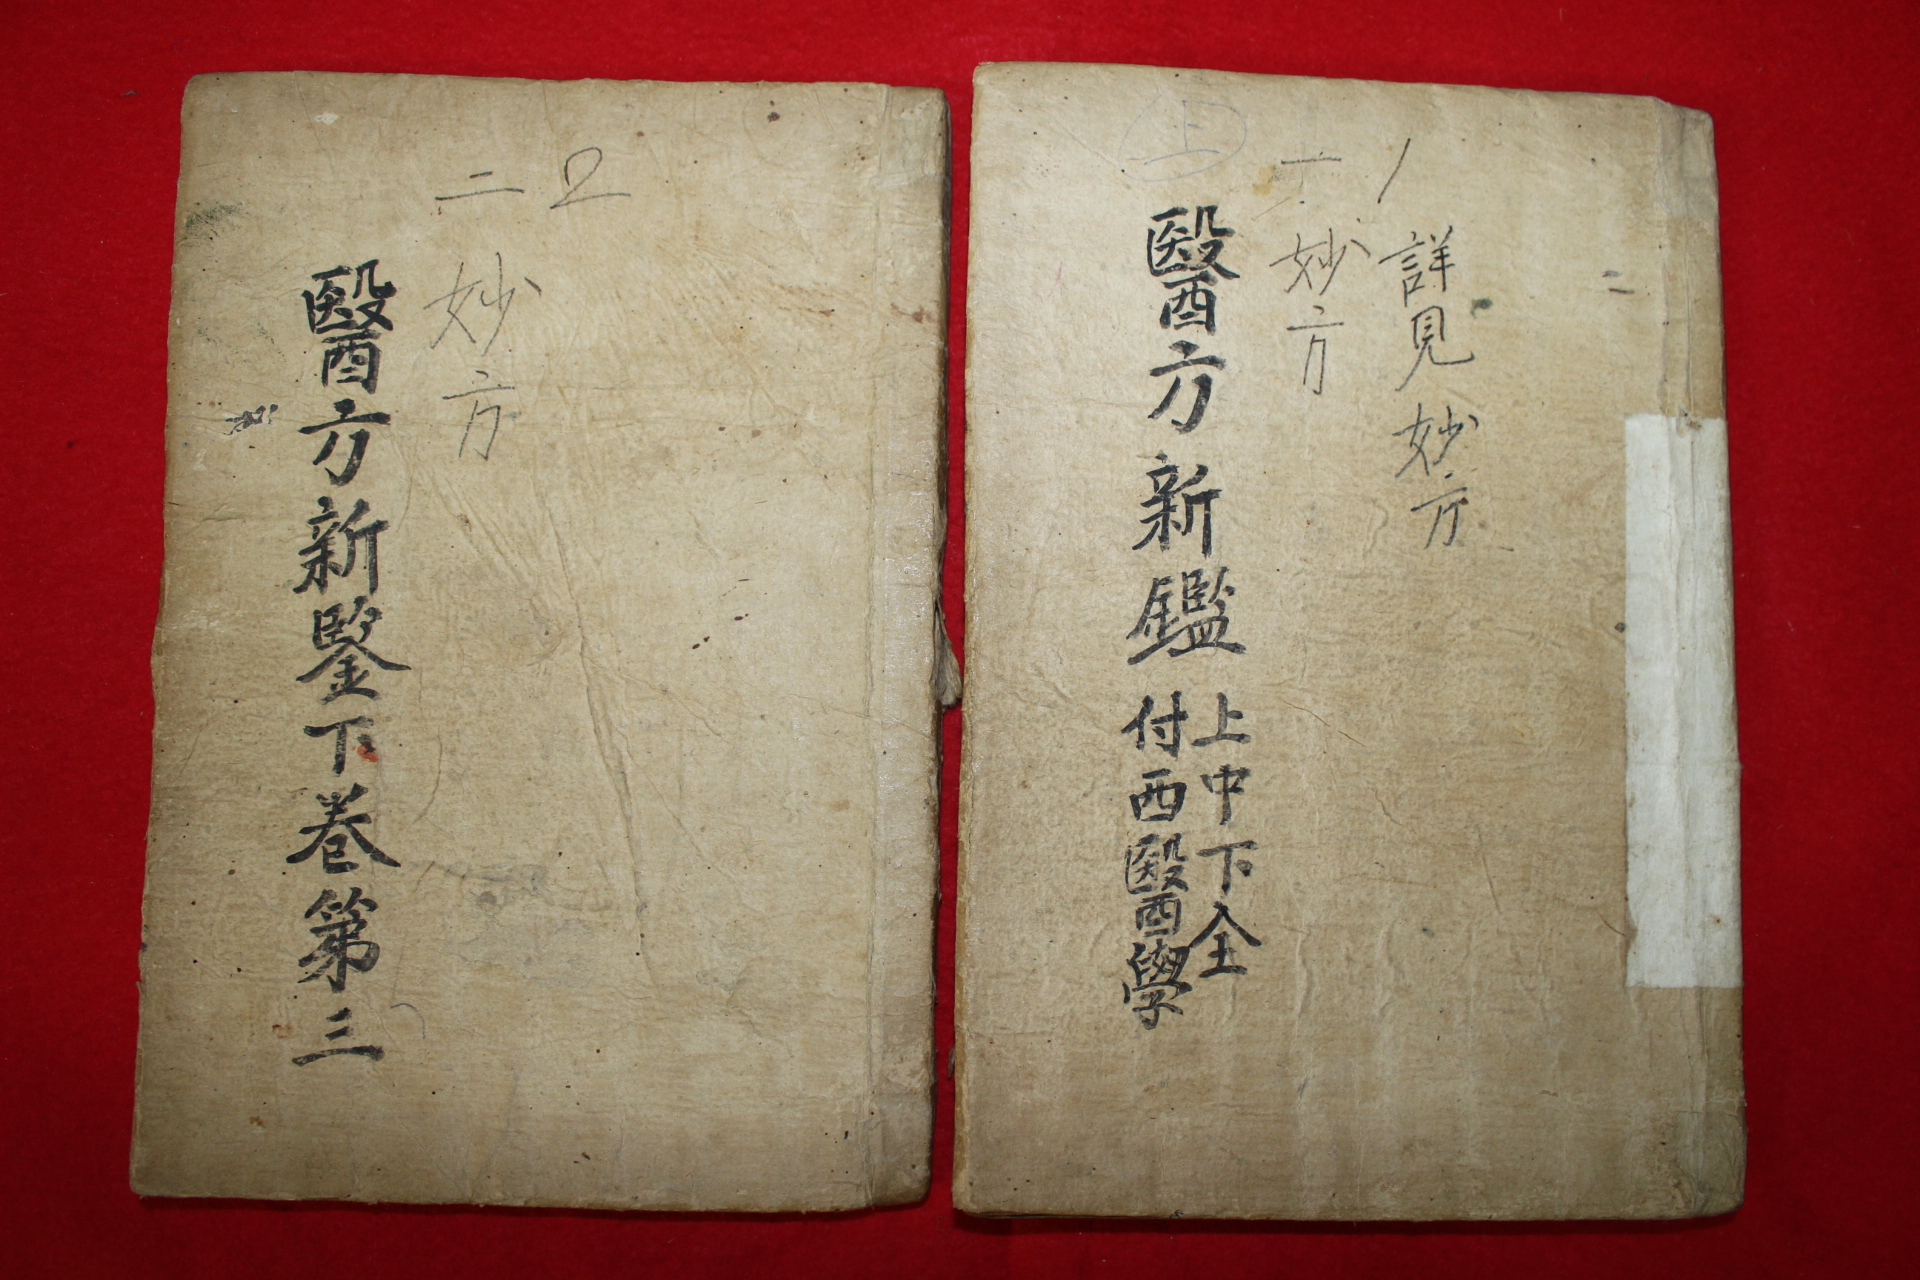 1
詳見妙方
一
妙方
上
醫方新鑑
上中下全
付西醫學
2
二
妙方
醫方新鑒下卷第三